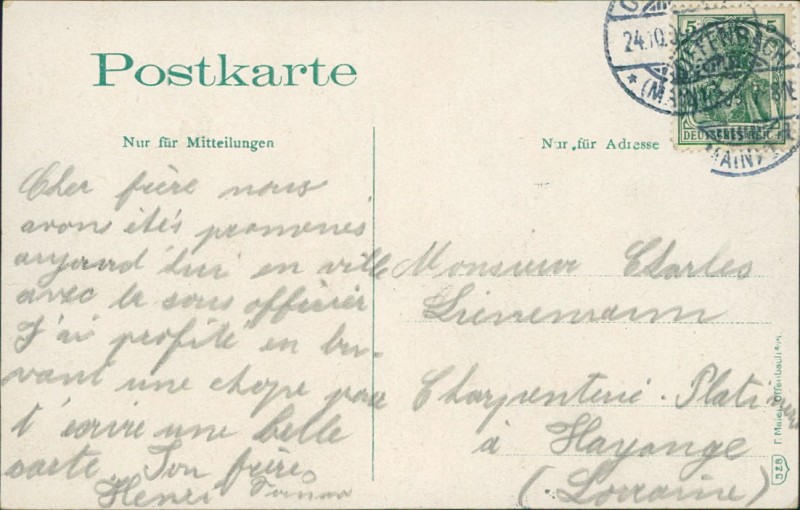 Postkarte
Nur für Mitteilungen
Nur für Adresse
5 5
DEUTSCHES REICH
24.10.
OFFENBACH
(MAIN)
Cher frère nous
avons étés promenés
aujourd'hui en ville
avec le sous officier
J'ai profité en bu-
vant une chope pour
t'écrire une belle
carte. Ton frère
Henri
Monsieur Charles
Lienemann
Charpenterie-Platinerie
à Hayange
(Lorraine)
F. Maier, Offenbach a/M.
528